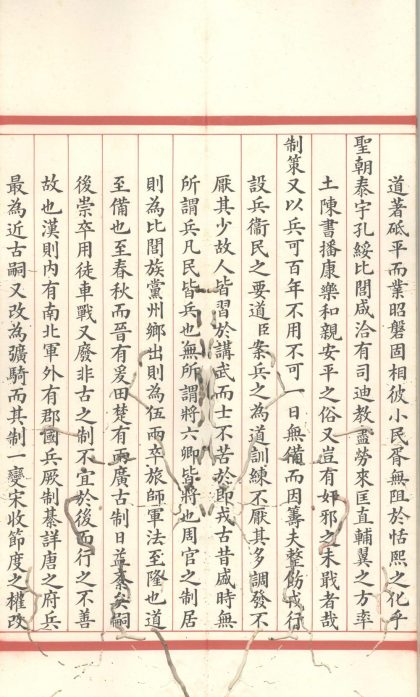 道著砥平而業昭磐固相彼小民胥無阻於恬熙之化乎
聖朝泰宇孔綏比閭咸洽有司迪教盡勞來匡直輔翼之方率
土陳書播康樂和親安平之俗又豈有奸邪之未戢者哉
制策又以兵可百年不用不可一日無備而因籌夫整飭戎行
設兵衛民之要道臣案兵之為道訓練不厭其多調發不
厭其少故人皆習於講武而士不苦於即戎古昔盛時無
所謂兵凡民皆兵也無所謂將六卿皆將也周官之制居
則為比閭族黨州鄉出則為伍兩卒旅師軍法至隆也道
至備也至春秋而晉有爰田楚有兩廣古制日益紊矣嗣
後崇卒用徒車戰又廢非古之制不宜於後而行之不善
故也漢則內有南北軍外有郡國兵厥制綦詳唐之府兵
最為近古嗣又改為彍騎而其制一變宋收節度之權改